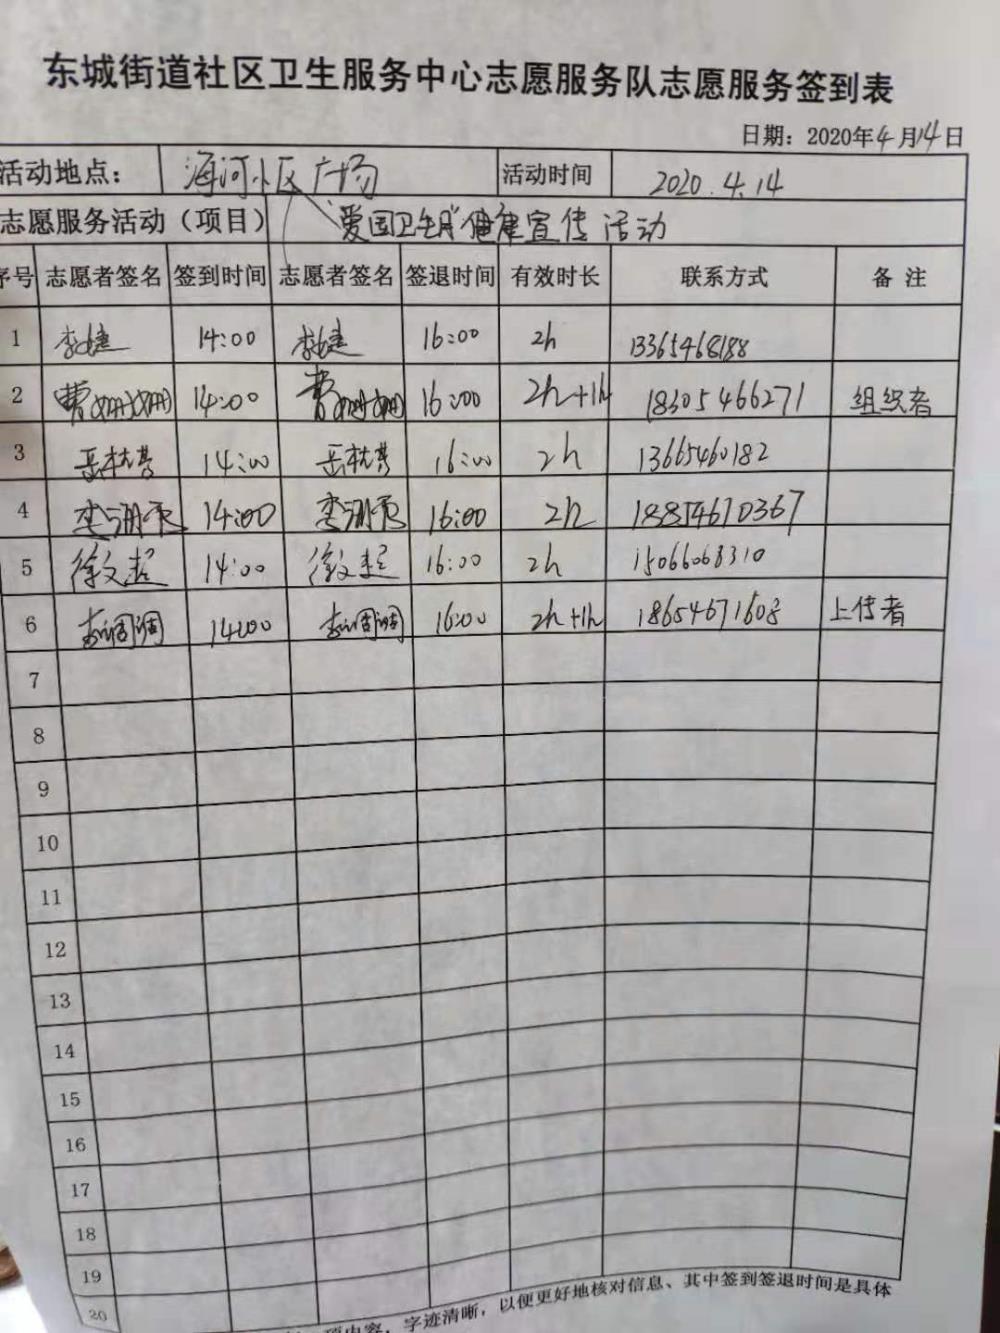 东城街道社区卫生服务中心志愿服务队志愿服务签到表
日期：2020年4月14日
活动地点： 海河小区广场 活动时间 2020.4.14
志愿服务活动（项目） “爱国卫生月”健康宣传活动
序号 志愿者签名 签到时间 志愿者签名 签退时间 有效时长 联系方式 备 注
1 李婕 14:00 李婕 16:00 2h 13365468188
2 曹姗姗 14:00 曹姗姗 16:00 2h+1h 18305466271 组织者
3 14:00 16:00 2h 13665460182
4 14:00 16:00 2h 18854670367
5 徐文超 14:00 徐文超 16:00 2h 15066068310
6 李调调 14:00 李调调 16:00 2h+1h 18654671608 上传者
7
8
9
10
11
12
13
14
15
16
17
18
19
20
项内容，字迹清晰，以便更好地核对信息、其中签到签退时间是具体